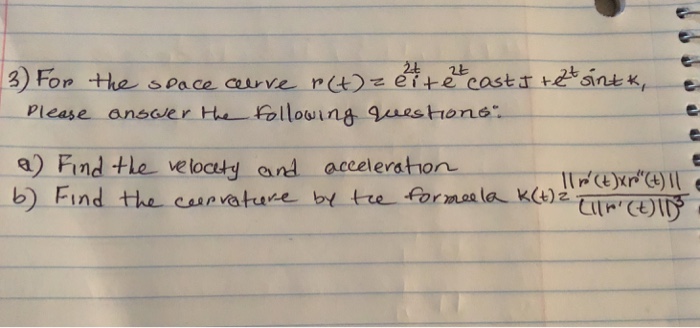 3) For the space curve r(t) = e^{2t}i + e^{2t} cost J + e^{2t} sint k,
Please answer the following questions:
a) Find the velocity and acceleration
b) Find the curvature by the formula K(t) = ||r'(t) x r''(t)|| / (||r'(t)||)^3